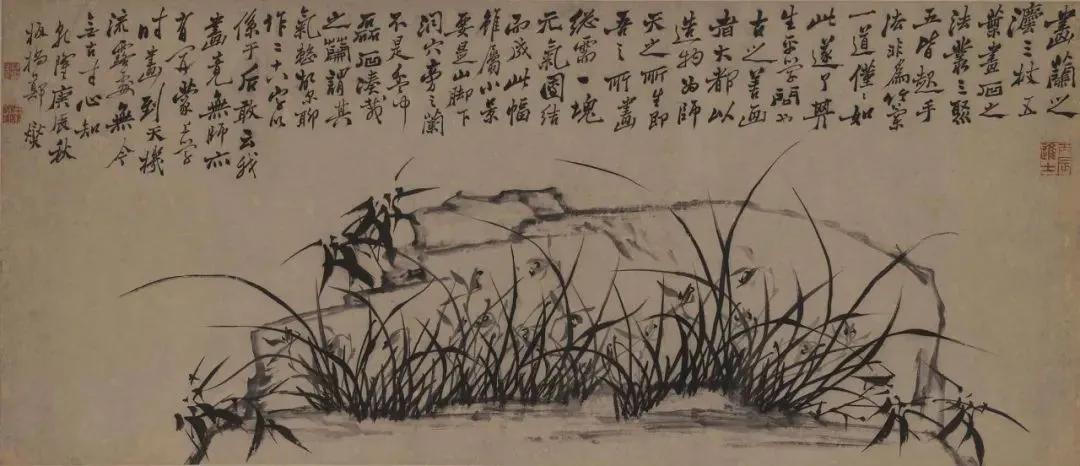 畫蘭之
法三枝五
葉畫石之
法叢三聚
五皆起手
法非為竹蘭
一道僅僅如
此遂了其
生平學問也
古之善画
者大都以
造物為師
天之所生即
吾之所畫
總需一塊
元氣團結
而成此幅
雖屬小景
要是山脚下
洞穴旁之蘭
不是盆中
磊石湊栽
之蘭謂其
氣整故尔聊
作二十八字以
係于后敢云我
畫竟無師亦
有開蒙上學
時畫到天機
流露處無今
無古寸心知
乾隆庚辰秋
板橋鄭燮